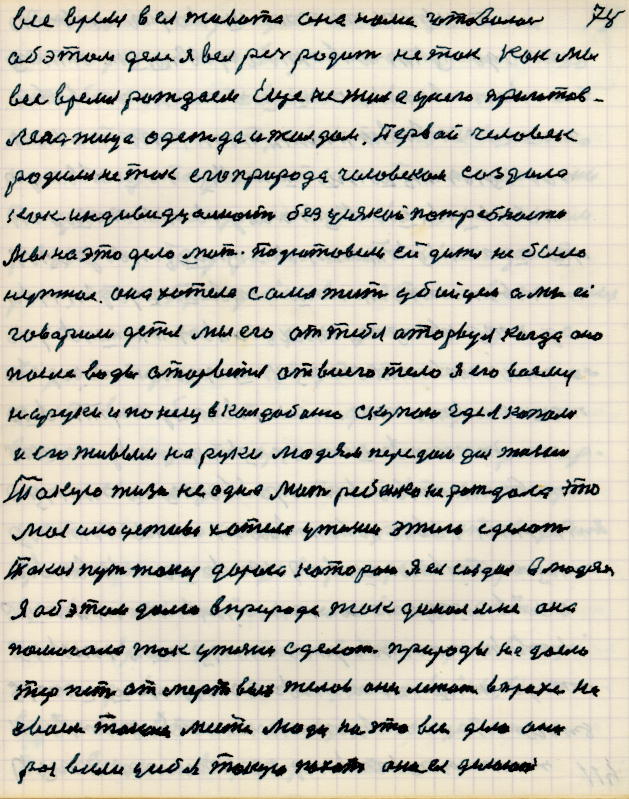 все время в ея живота она нами готовилась 78
об этом деля я вел реч родит не так как мы
все время рождаем Еще не жил а у него приготов-
лена пища одежда и жилдом. Первай человек
родился не так его природа человеком создала
как индивидуалности без усякой потребности
Мы на это дело мат. подготовели ей дитя не было
нужное. она хотела сама жит убийцей а мы ей
говарили детя мы его от тебя оторвул когда оно
после воды оторветця от твоего тело я его возму
на руки и понесу в Колдобаню скупаю где я копали
и его живым на руки людям передам для жизни
Такую жизн не одна Мат ребёнка не рождала Это
мое ино детива хотела у жизни этого сделат
Такой пут такая дорога которою я ея создал в людях
Я об этом долго в природе так думал мне она
помогала так у жизни сделат. природы не дось
терпет от мертвых телов они лежат в прахе на
своем таком месте Люди на это все дело они
развили у себя такую похоть она ея делают